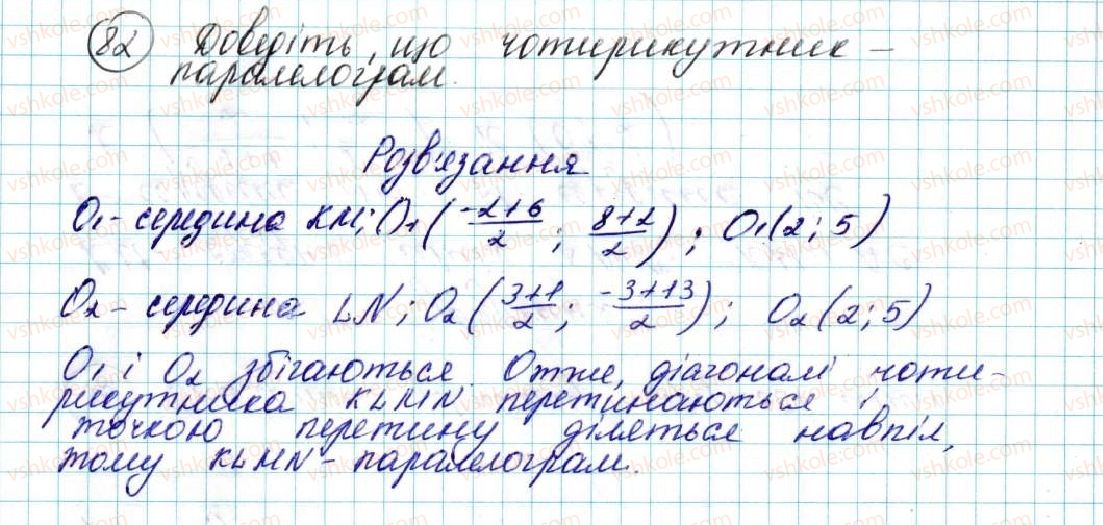 82 Доведіть, що чотирикутник –
паралелограм.
Розв'язання
O₁ - середина KM; O₁(-2+6/2; 8+2/2); O₁(2; 5)
O₂ - середина LN; O₂(3+1/2; -3+13/2); O₂(2; 5)
O₁ і O₂ збігаються. Отже, діагоналі чоти-
рикутника KLMN перетинаються і
точкою перетину діляться навпіл,
тому KLMN - паралелограм.